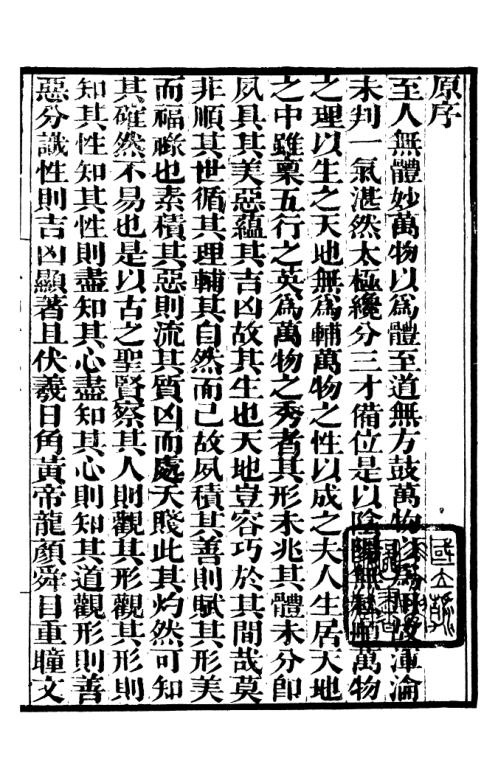 原序
至人無體妙萬物以爲體至道無方鼓萬物以爲用故渾淪
未判一氣湛然太極纔分三才備位是以陰陽無私順萬物
之理以生之天地無爲輔萬物之性以成之夫人生居天地
之中雖稟五行之英爲萬物之秀者其形未兆其體未分卽
夙具其美惡蘊其吉凶故其生也天地豈容巧於其間哉莫
非順其世循其理輔其自然而已故夙積其善則賦其形美
而福祿也素積其惡則流其質凶而處夭賤此其灼然可知
其確然不易也是以古之聖賢察其人則觀其形觀其形則
知其性知其性則盡知其心盡知其心則知其道觀形則善
惡分識性則吉凶顯著且伏羲日角黃帝龍顏舜目重瞳文